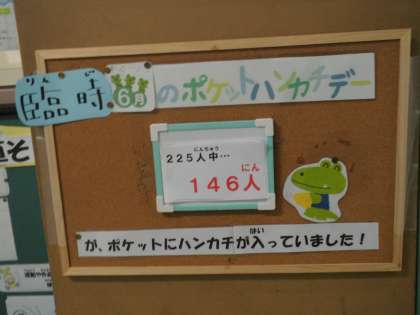 りんじ
臨時6月のポケットハンカチデー
にんちゅう
225人中…
にん
146人
はい
が、ポケットにハンカチが入っていました！